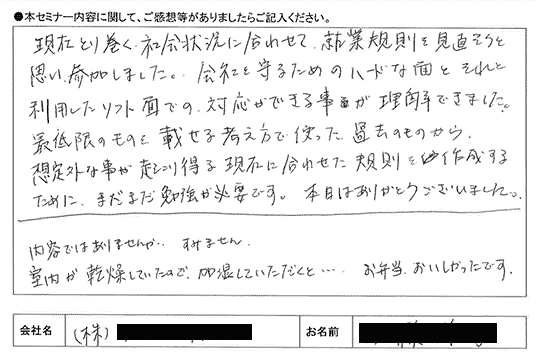 ●本セミナー内容に関して、ご感想等がありましたらご記入ください。
現在とり巻く社会状況に合わせて、就業規則を見直そうと
思い、参加しました。会社を守るためのハードな面とそれと
利用したソフト面での、対応ができる事が理解できました。
最低限のものを載せる考え方で使った過去のものから、
想定外な事が起こり得る現在に合わせた規則を作成する
ために、まだまだ勉強が必要です。本日はありがとうございました。
内容ではありませんが、すみません。
室内が乾燥していたので、加湿していただくと…… お弁当、おいしかったです。
会社名 (株) お名前